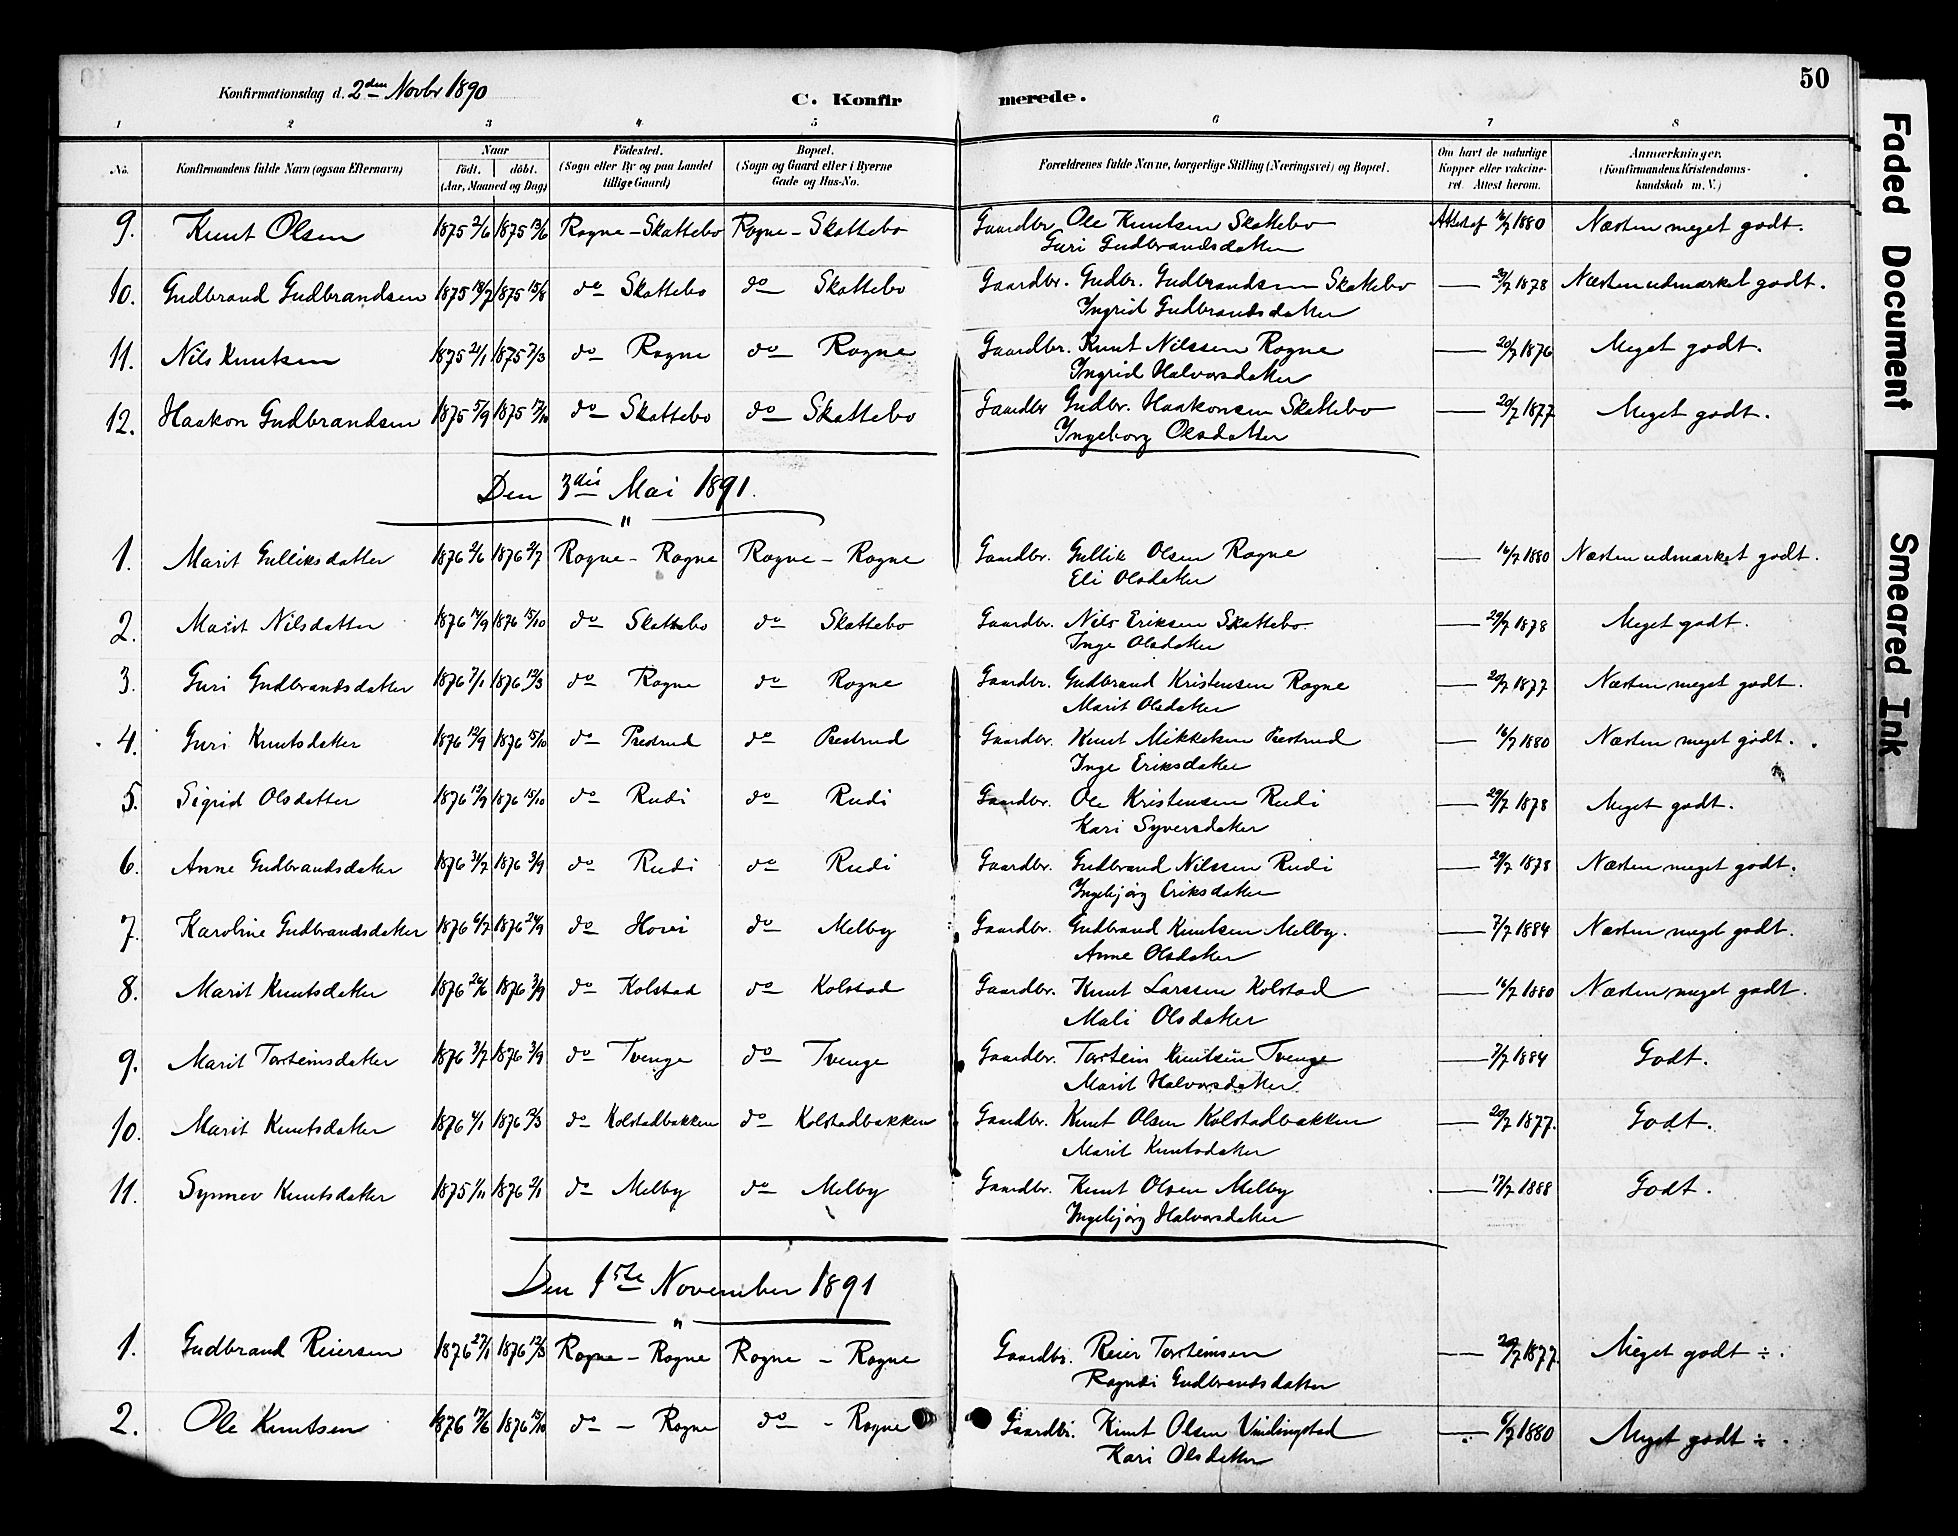 50
Konfirmationsdag d. 2den Novbr 1890
C. Konfirmerede.
1 2 3 4 5 6 7 8
No. Konfirmandens fulde Navn (ogsaa Efternavn) Naar født. døbt. (Aar, Maaned og Dag) Fødested. (Sogn eller By og paa Landet tillige Gaard) Bopæl. (Sogn og Gaard eller i Byerne Gade og Hus-No. Forældrenes fulde Navne, borgerlige Stilling (Næringsvei) og Bopæl. Om havt de naturlige Kopper eller vakcineret. Attest herom. Anmærkninger. (Konfirmandens Kristendomskundskab m. V.)
9. Knut Olsen 1875 2/6 1875 13/6 Rogne - Skattebo Rogne - Skattebo Gaardbr. Ole Knutsen Skattebo 1880 Næsten meget godt.
Guri Gudbrandsdatter
10. Gudbrand Gudbrandsen 1875 18/7 1875 15/8 do Skattebo do Skattebo Gaardbr. Gudbr. Gudbrandsen Skattebo 1878 Næsten udmærket godt.
Ingrid Gudbrandsdatter
11. Nils Knutsen 1875 21/1 1875 7/3 do Rogne do Rogne Gaardbr. Knut Nilssen Rogne 20/7 1876 Meget godt.
Ingrid Halvorsdatter
12. Haakon Gudbrandsen 1875 5/9 1875 17/10 do Skattebo do Skattebo Gaardbr Gudbr. Haakonsen Skattebo 20/7 1877 Meget godt.
Ingeborg Olsdatter
Den 3die Mai 1891.
1. Marit Gulliksdatter 1876 2/6 1876 2/7 Rogne - Rogne Rogne - Rogne Gaardbr. Gullik Olsen Rogne 16/7 1880 Næsten udmærket godt.
Eli Olsdatter
2. Marit Nilsdatter 1876 14/9 1876 15/10 do Skattebo do Skattebo Gaardbr. Nils Eriksen Skattebo. 29/7 1878 Meget godt.
Inge Olsdatter
3. Guri Gudbrandsdatter 1876 7/1 1876 12/3 do Rogne do Rogne Gaardbr. Gudbrand Kristensen Rogne 20/7 1877 Næsten meget godt.
Marit Olsdatter
4. Guri Knutsdatter 1876 12/9 1876 15/10 do Præstrud do Præstrud Gaardbr. Knut Mikkelsen Præstrud 16/7 1880 Næsten meget godt.
Inge Eriksdatter
5. Sigrid Olsdatter 1876 12/9 1876 15/10 do Rudi do Rudi Gaardbr. Ole Kristensen Rudi 29/7 1878 Meget godt.
Kari Syversdatter
6. Anne Gudbrandsdatter 1876 31/7 1876 3/9 do Rudi do Rudi Gaardbr. Gudbrand Nilssen Rudi 29/7 1878 Næsten meget godt.
Ingebjørg Eriksdatter
7. Karoline Gudbrandsdatter 1876 6/7 1876 24/9 do Hovi do Melby Gaardbr. Gudbrand Knutsen Melby. 7/7 1884 Næsten meget godt.
Anne Olsdatter
8. Marit Knutsdatter 1876 26/6 1876 3/9 do Kolstad do Kolstad Gaardbr. Knut Larssen Kolstad 16/7 1880 Næsten meget godt.
Mali Olsdatter
9. Marit Torsteinsdatter 1876 3/7 1876 3/9 do Tvenge do Tvenge Gaardbr. Torstein Knutsen Tvenge 7/7 1884 Godt.
Marit Halvorsdatter.
10. Marit Knutsdatter 1876 4/1 1876 12/3 do Kolstadbakken do Kolstadbakken Gaardbr. Knut Olsen Kolstadbakken 20/7 1877. Godt.
Marit Knutsdatter
11. Synnev Knutsdatter 1875 1/11 1876 2/1 do Melby do Melby Gaardbr. Knut Olsen Melby 17/7 1888 Godt.
Ingebjørg Halvorsdatter
Den 1ste November 1891
1. Gudbrand Reiersen 1876 27/1 1876 12/3 Rogne - Rogne Rogne - Rogne Gaardbr. Reier Torsteinsen 20/7 1877. Meget godt ÷.
Ragndi Gudbrandsdatter
2. Ole Knutsen 1876 17/6 1876 15/10 do - Rogne do - Rogne Gaardbr. Knut Olsen 1880 Meget godt ÷
Kari Olsdatter
Faded Document
Smeared Ink